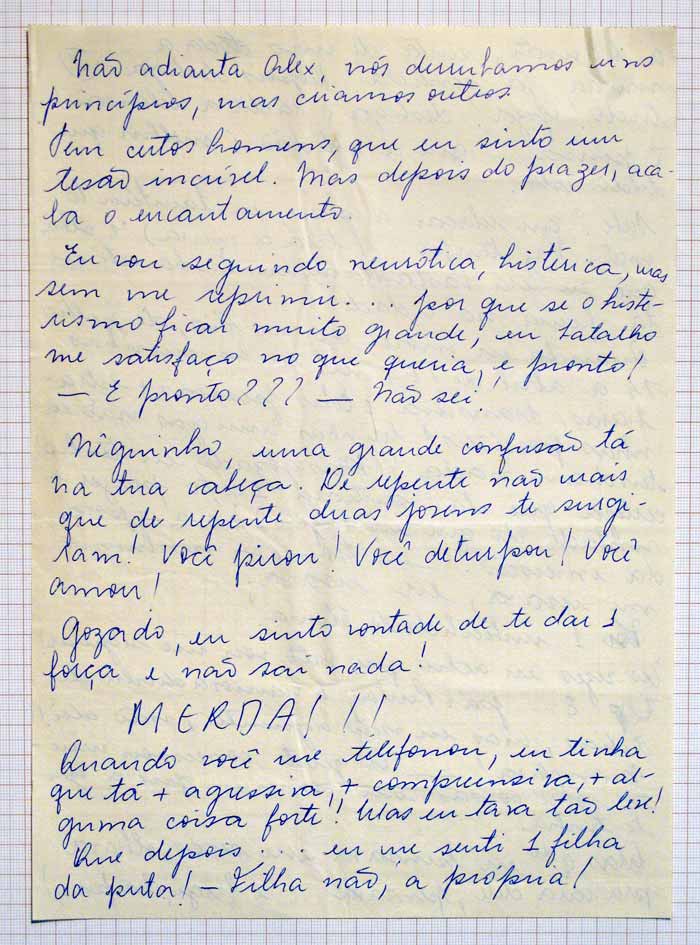 Não adianta Alex, nós derrubamos uns
princípios, mas criamos outros.
Tem certos homens, que eu sinto um
tesão incrível. Mas depois do prazer, aca-
ba o encantamento.
Eu vou seguindo neurótica, histérica, mas
sem me reprimir... por que se o histe-
rismo ficar muito grande, eu batalho
me satisfaço no que queria, e pronto!
— E pronto??? — Não sei!
Niguinho, uma grande confusão tá
na tua cabeça. De repente não mais
que de repente duas jovens te surgi-
ram! Você pirou! Você deturpou! Você
amou!
Gozado, eu sinto vontade de te dar 1
força e não sai nada!
MERDA!!!
Quando você me telefonou, eu tinha
que tá + agressiva, + compreensiva, + al-
guma coisa forte! Mas eu tava tão leve!
Que depois... eu me senti 1 filha
da puta! — Filha não, a própria!